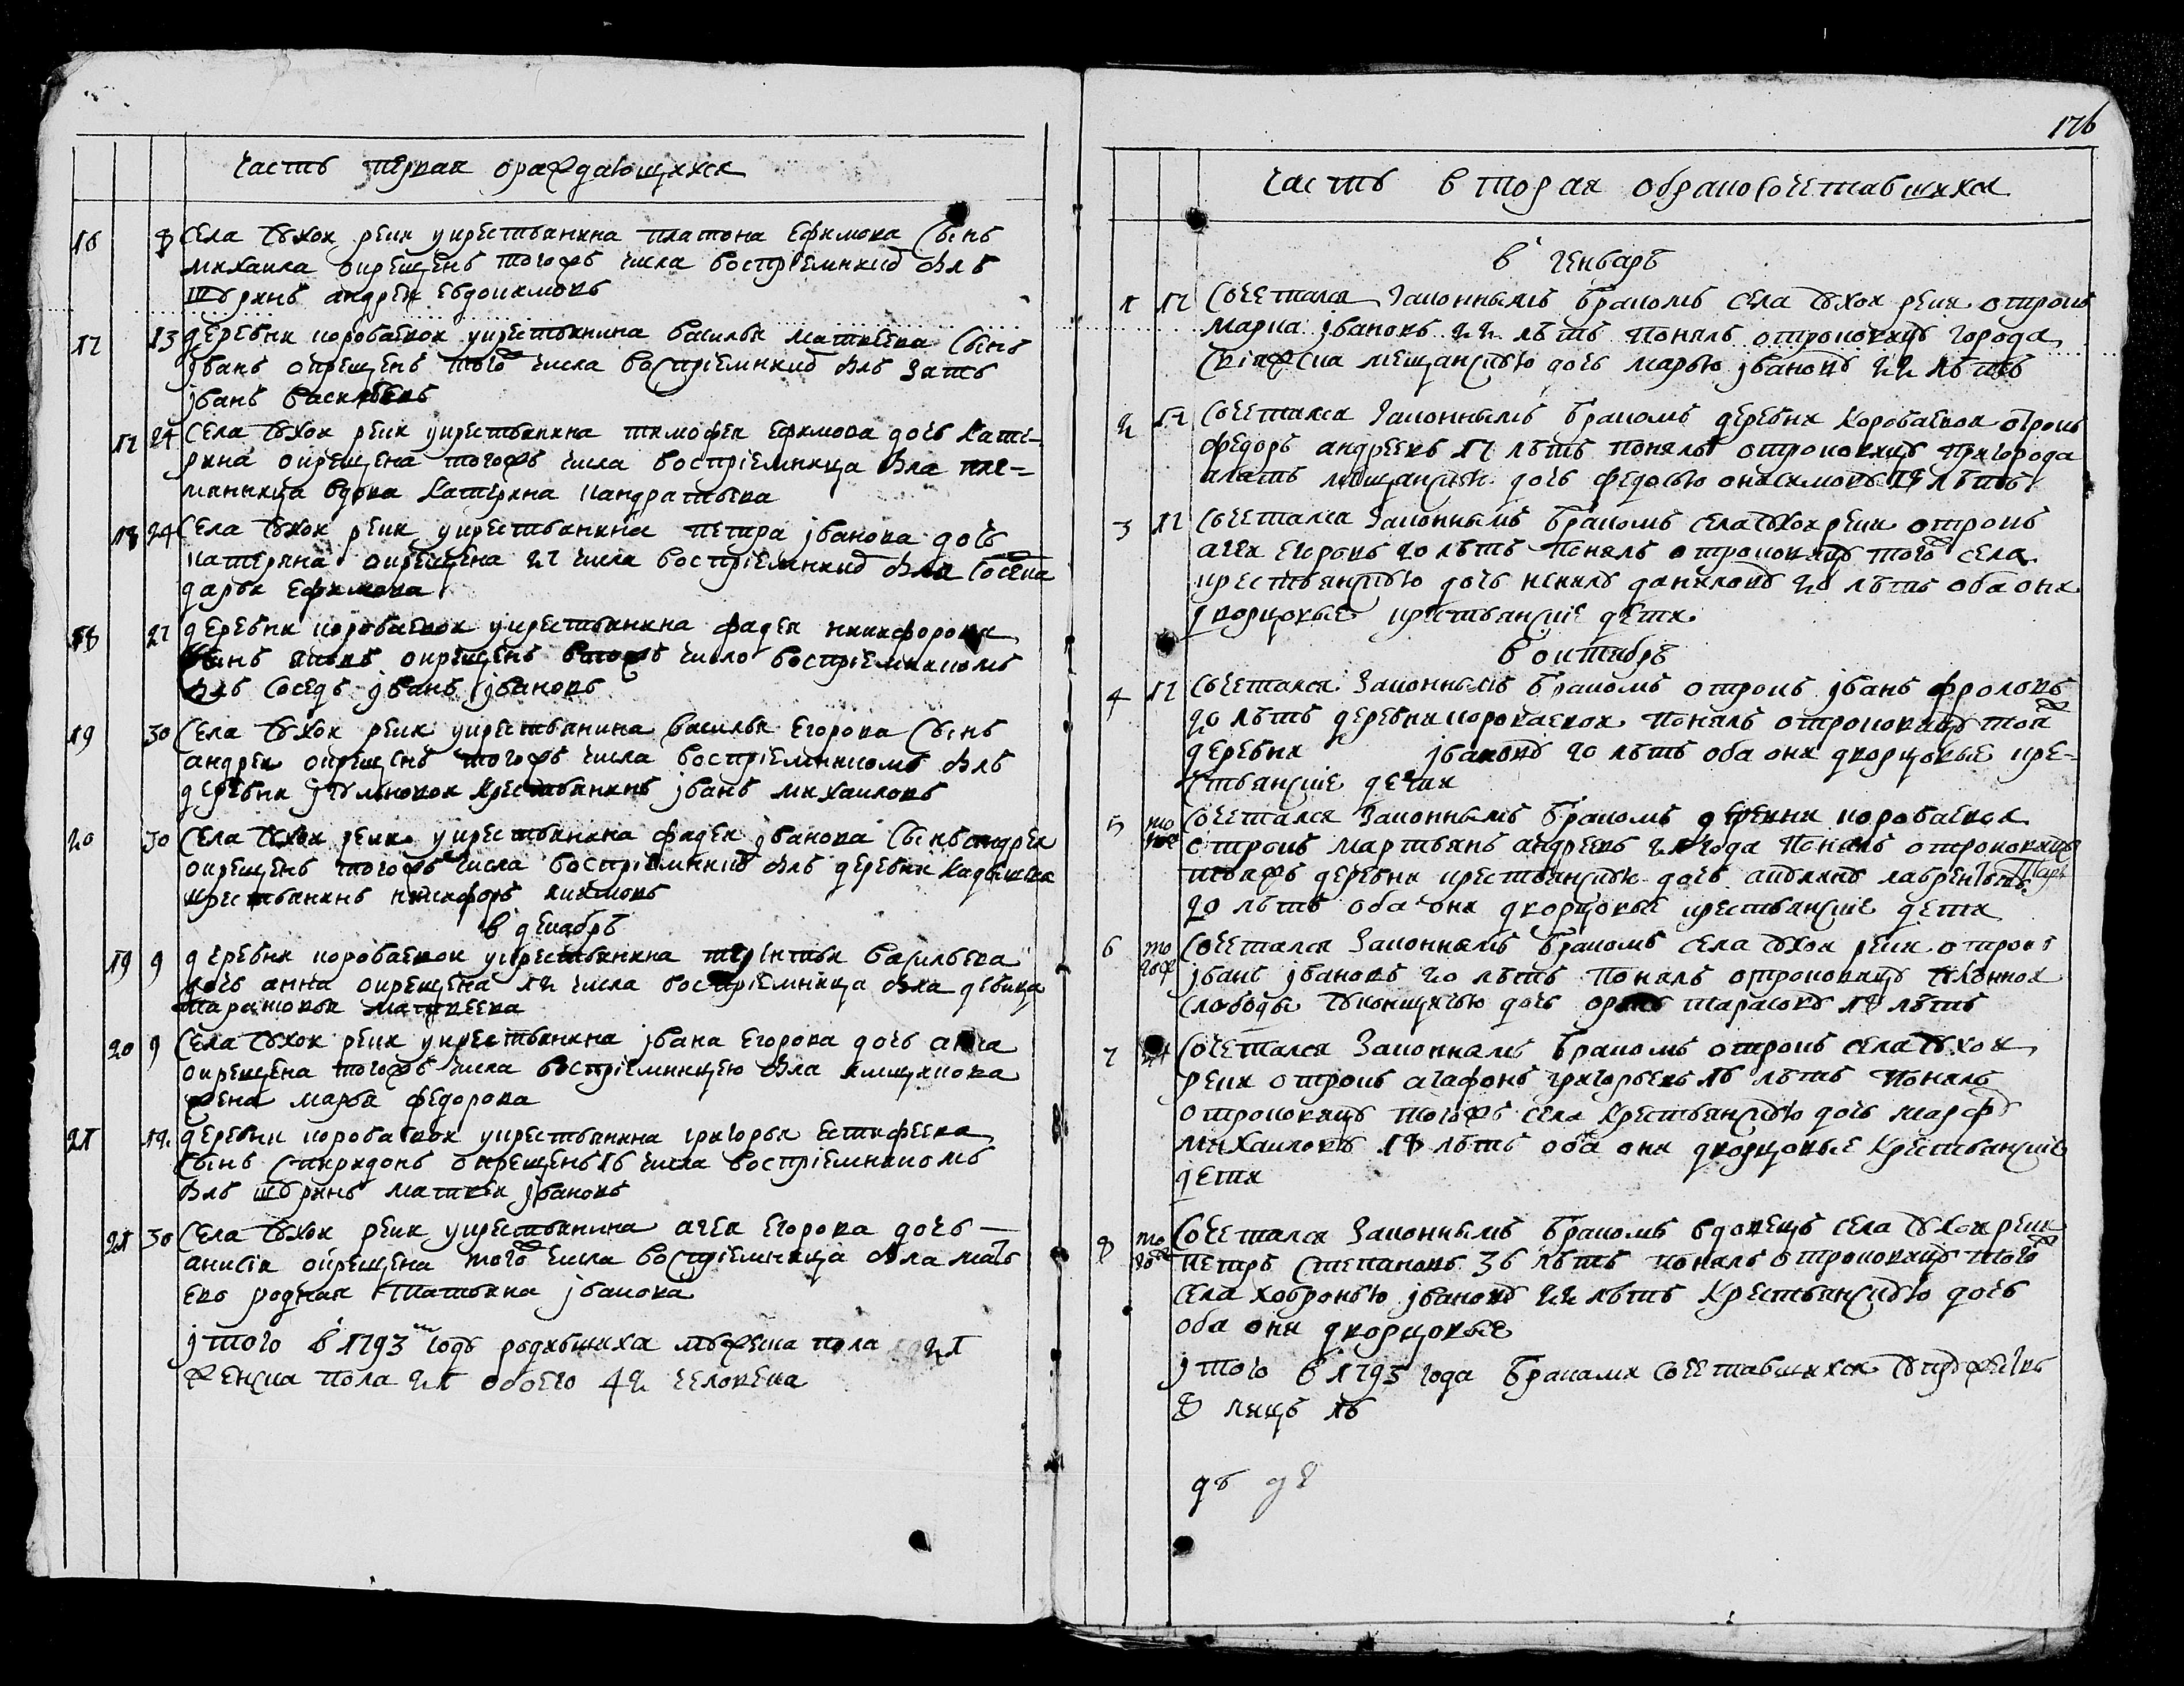 часть первая ораждающихся
16 8 села Сухой реки укрестьянина платона Ефимова сынъ
михаила окрещенъ тогожъ числа воспріемникомъ былъ
шуринъ андрей Евдокимовъ
17 13 деревни коробаевой укрестьянина василья матвеева сынъ
иванъ окрещенъ тогожъ числа воспріемникомъ былъ зять
иванъ васильевъ
17 24 села Сухой реки укрестьянина тимофея ефимова дочь кате-
рина окрещена тогожъ числа воспріемница была пле-
мянница вдова катерина кандратьева
18 24 села Сухой реки укрестьянина петра иванова дочь
катерина окрещена 27 числа воспріемницей была соседка
дарья ефимова
18 27 деревни коробаевой укрестьянина фадея никифорова
сынъ яковъ окрещенъ тогожъ число воспріемникомъ
былъ соседъ иванъ ивановъ
19 30 села Сухой реки укрестьянина василья егорова сынъ
андрей окрещенъ тогожъ числа воспріемникомъ былъ
деревни крестьянинъ иванъ михаиловъ
20 30 села Сухой реки укрестьянина фадея иванова сынъ андрей
окрещенъ тогожъ числа воспріемникомъ былъ деревни
крестьянинъ никифоръ
в декабрѣ
19 9 деревни коробаевой укрестьянина терентья васильева
дочь анна окрещена 12 числа воспріемница была девица
матвеева
20 9 села Сухой реки укрестьянина ивана егорова дочь анна
окрещена тогожъ числа воспріемницею была
жена марья федорова
21 12 деревни коробаевой укрестьянина григорья естифеева
сынъ спиридонъ окрещенъ 16 числа воспріемникомъ
былъ шуринъ матвей ивановъ
21 30 села Сухой реки укрестьянина агея егорова дочь
анисія окрещена тогожъ числа воспріемница была мать
ево родная татьяна иванова
итого в 1793 годѣ родившихся мужеска пола 21
женска пола 21 обоего 42 человека
176
часть вторая обракосочетавшихся
в генварѣ
1 17 сочетался законнымъ бракомъ села Сухой реки отрокъ
марка ивановъ 22 лѣтъ понялъ отроковицу города
свіяжска мещанскую дочь марью иванову 22 лѣтъ
2 17 сочетался законнымъ бракомъ деревни коробаевой отрокъ
федоръ андреевъ 17 лѣтъ понялъ отроковицу пригорода
алатъ мещанскую дочь федосью онисимову 18 лѣтъ
3 17 сочетался законнымъ бракомъ села Сухой реки отрокъ
агей егоровъ 20 лѣтъ понялъ отроковицу тогожъ села
крестьянскую дочь ненилу данилову 20 лѣтъ оба они
дворцовые крестьянскіе дети
в октябрѣ
4 17 сочетался законнымъ бракомъ отрокъ иванъ фроловъ
20 лѣтъ деревни коробаевой понялъ отроковицу тойже
деревни иванову 20 лѣтъ оба они дворцовые кре-
стьянскіе дети
5 сочетался законнымъ бракомъ деревни коробаевой
отрокъ мартьянъ андреевъ 21 года понялъ отроковицу
тоежъ деревни крестьянскую дочь акулину лаврентьеву
20 лѣтъ оба они дворцовые крестьянскіе дети
6 того ж сочетался законнымъ бракомъ села Сухой реки отрокъ
иванъ ивановъ 20 лѣтъ понялъ отроковицу
слободы дочь тарасову 18 лѣтъ
7 сочетался законнымъ бракомъ отрокъ села Сухой
реки отрокъ агафонъ григорьевъ 16 лѣтъ понялъ
отроковицу тогожъ села крестьянскую дочь марфу
михаилову 18 лѣтъ оба они дворцовые крестьянскіе
дети
8 того ж сочетался законнымъ бракомъ вдовецъ села Сухой реки
петръ степановъ 36 лѣтъ понялъ отроковицу тогожъ
села ховронью иванову 22 лѣтъ крестьянскую дочь
оба они дворцовые
итого в 1793 года браками сочетавшихся супружествъ
8 лицъ 16